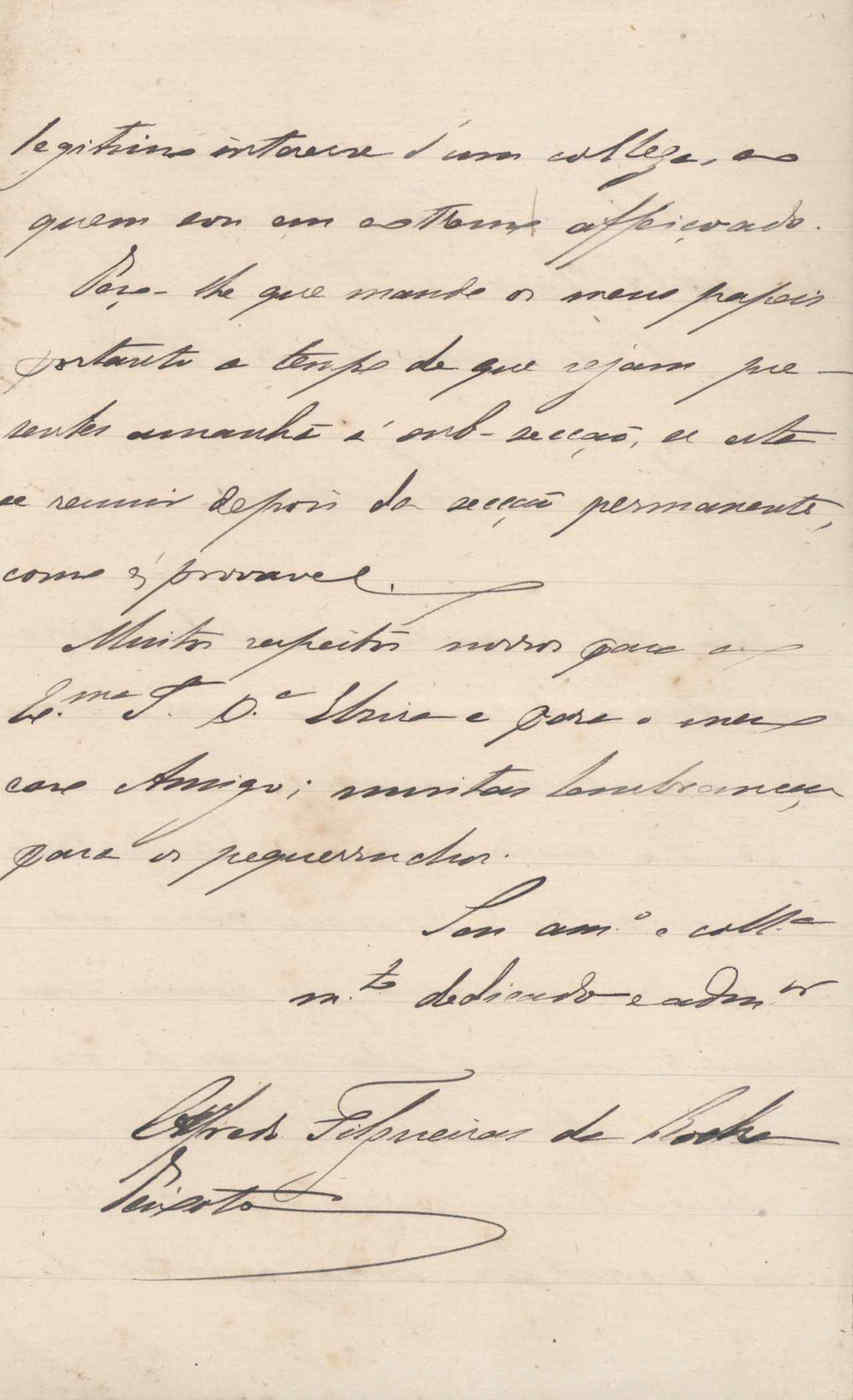 legitimo interesse d'um collega, ao
quem sou em extremo affeiçoado.
Peço-lhe que mande os meus papeis
portanto a tempo de que sejam pre-
sentes amanhã á sub-secção, se esta
se reunir depois da secção permanente,
como é provavel.
Muitos respeitos nossos para a
Ex.ma S.ª D.ª Elvira e para o meu
caro Amigo; muitas lembranças
para os pequerruchos.
Seu am.º e coll.ª
m.to dedicado e adm.or
Alfredo Filgueiras da Rocha
Peixoto